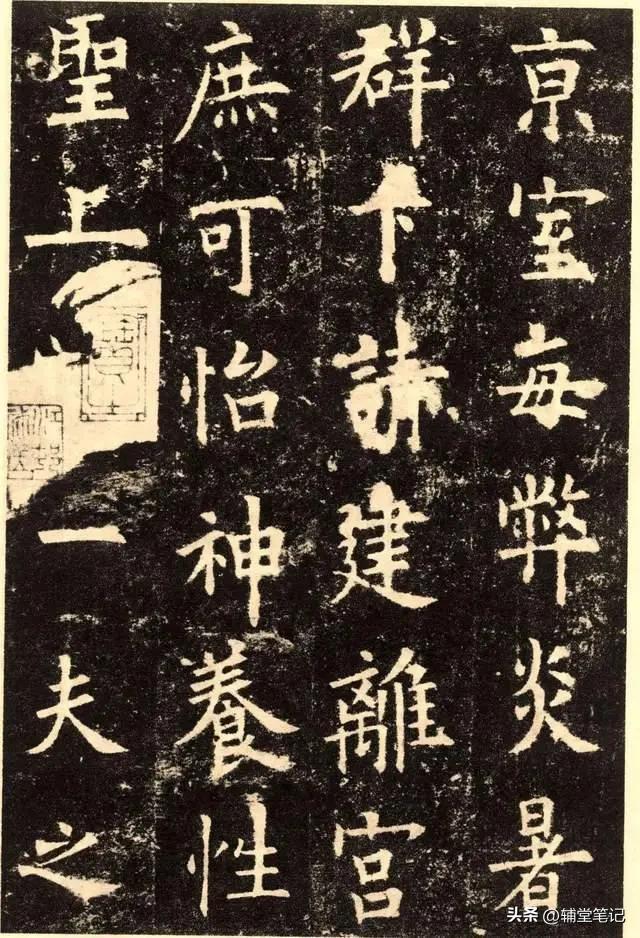 京室每弊炎暑
群下請建離宮
庶可怡神養性
聖上一夫之
头条 @辅堂笔记